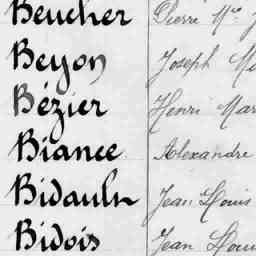 Beucher Pierre M
Beyon Joseph M
Bézier Henri Mar
Biance Alexandre
Bidault Jean Louis
Bidois Jean Loui